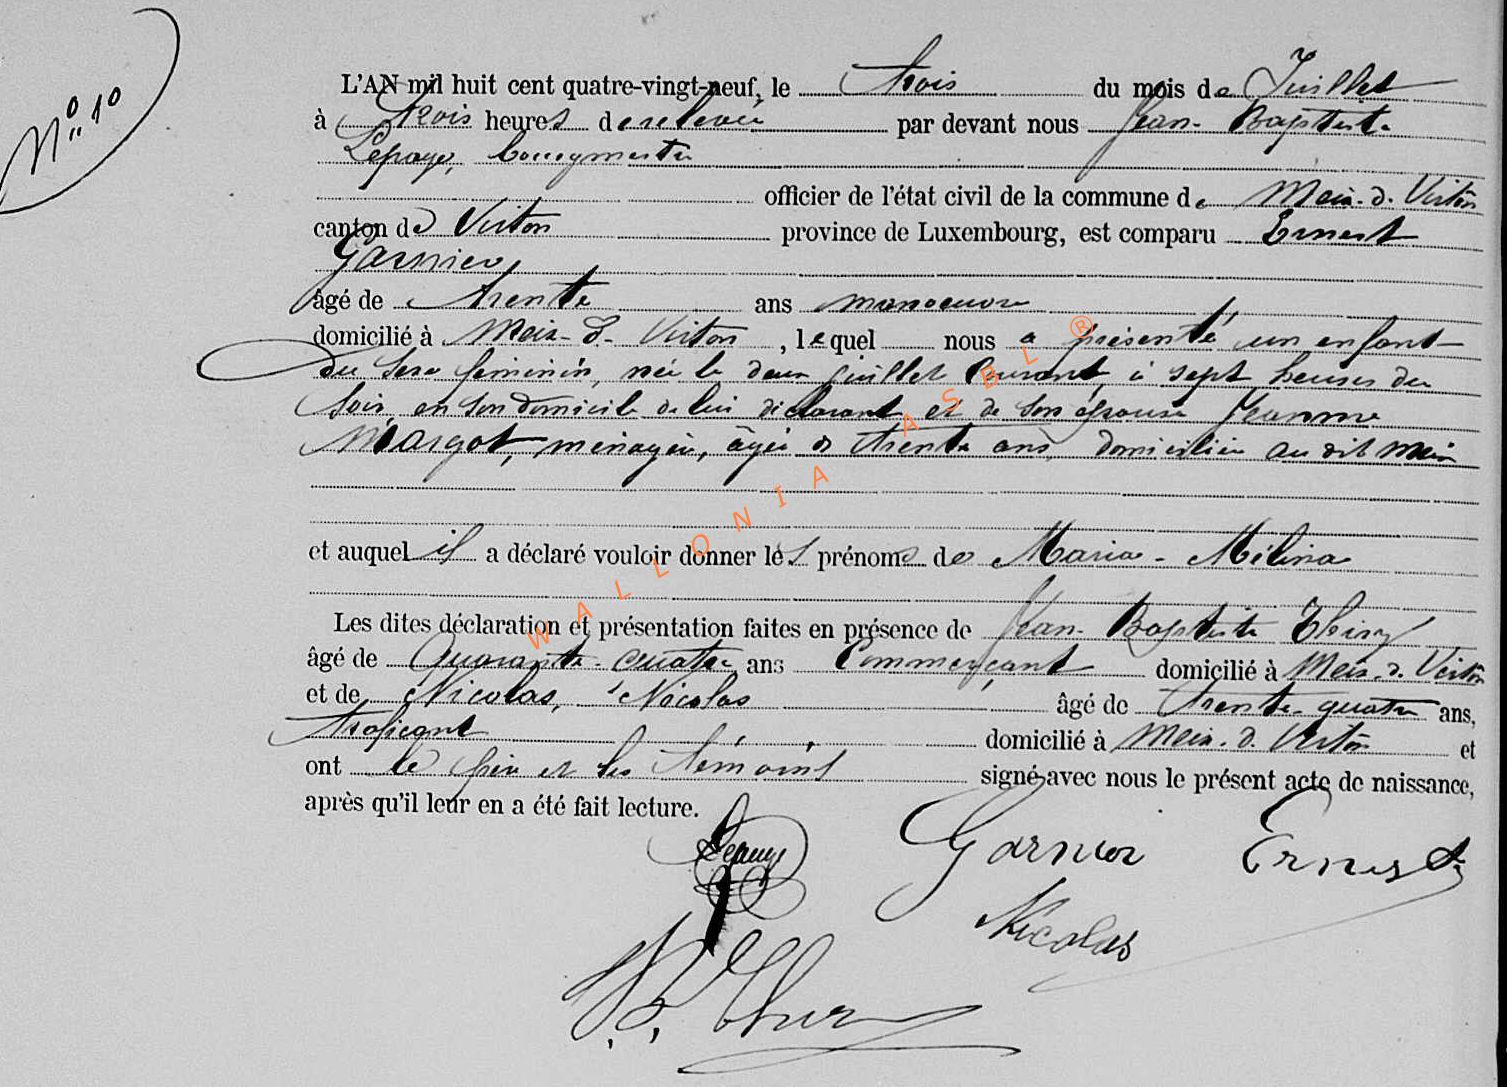 N° 10
L'AN mil huit cent quatre-vingt-neuf, le trois du mois de Juillet
à trois heures de relevée par devant nous Jean-Baptiste
Lepage, bourgmestre
officier de l'état civil de la commune de Meix-d-Virton
canton de Virton province de Luxembourg, est comparu Ernest
Garnier
âgé de trente ans manoeuvre
domicilié à Meix-d-Virton, lequel nous a présenté un enfant
du sexe féminin, née le deux juillet courant, à sept heures du
soir, en son domicile de lui déclarant et de son épouse Jeanne
Margot, ménagère, âgée de trente ans, domiciliée au dit Meix
et auquel il a déclaré vouloir donner les prénoms de Maria-Mélina
Les dites déclaration et présentation faites en présence de Jean-Baptiste Thiry
âgé de Quarante-quatre ans Commerçant domicilié à Meix-d-Virton
et de Nicolas, Nicolas âgé de trente-quatre ans,
trafiquant domicilié à Meix-d-Virton et
ont le père et les témoins signé avec nous le présent acte de naissance,
après qu'il leur en a été fait lecture.
Lepage Garnier Ernest
Nicolas
JB. Thiry
WALLONIA ASBL ®